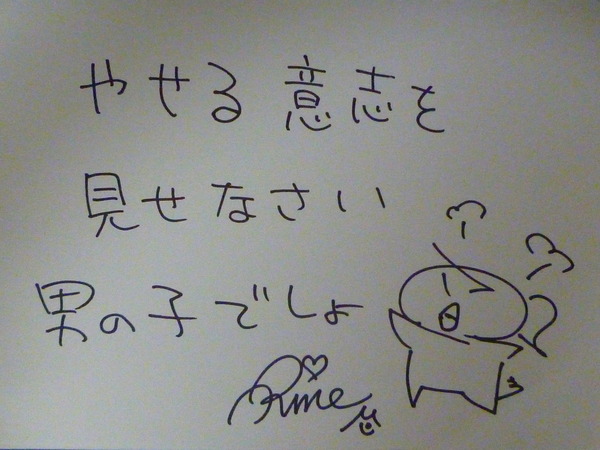 やせる意志を
見せなさい
男の子でしょ
Rime